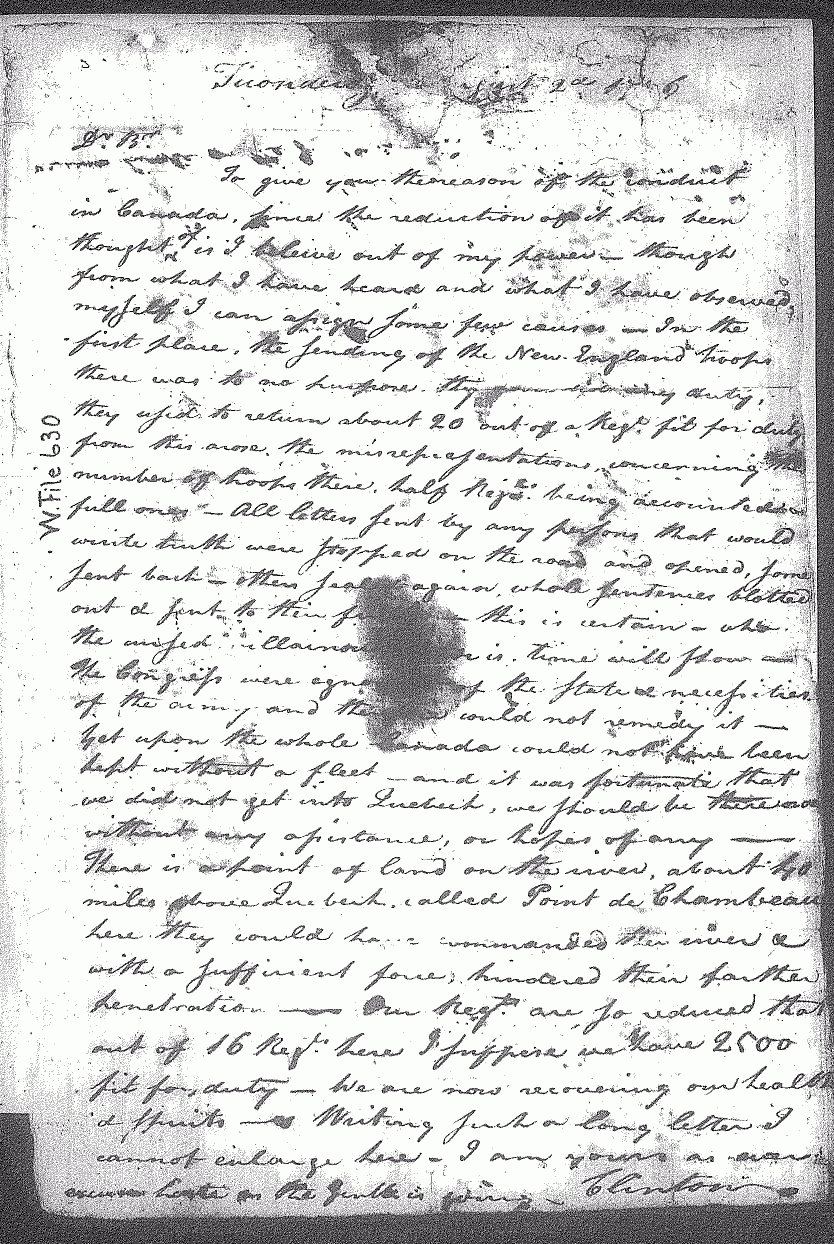 Sept 2d 1776
Dr. Br.
To give you the reason of the conduct
in Canada, since the reduction of it has been
thought of is I beleive out of my power — though
from what I have heard and what I have observed
myself I can assign some few causes — In the
first place, the sending of the New-England troops
there was to no purpose. thy any duty,
they used to return about 20 out of a Regt. fit for duty
from this arose, the misrepresentations, concerning the
number of troops there, half Regts. being accounted
full ones — All letters sent by any persons that would
write truth were stopped on the road and opened, some
sent back — others again, whole sentences blotted
out & sent to their — this is certain — who
the is, time will show —
The Congress were of the state & necessities
of the army and the could not remedy it —
Yet upon the whole Canada could not have been
kept without a fleet — and it was fortunate that
we did not get into Quebeck, we should be there
without any assistance, or hopes of any —
There is a point of land on the river, about 40
miles above Quebeck, called Point de Chambeau
here they could commanded the river &
with a sufficient force, hindered their farther
penetration — Our Regts. are so reduced that
out of 16 Regts. here I suppose we have 2500
fit for duty — We are now recovering our health
& spirits — Writing such a long letter I
cannot enlarge here — I am yours as ever
haste as the is going — Clinton
W. File 630